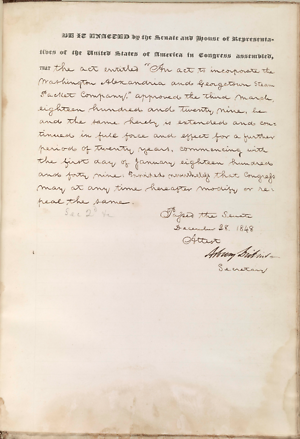 BE IT ENACTED by the Senate and House of Representa-
tives of the United States of America in Congress assembled,
THAT the act entitled "An act to incorporate the
Washington Alexandria and Georgetown Steam
Packet Company," approved the third march
eighteen hundred and twenty nine, be
and the same hereby is extended and con-
tinued in full force and effect for a further
period of twenty years, commencing with
the first day of January eighteen hundred
and forty nine. Provided nevertheless that Congress
may at any time hereafter modify or re-
peal the same
Sec 2d
Passed the Senate
December 28. 1848
Attest
Asbury Dickins
Secretary